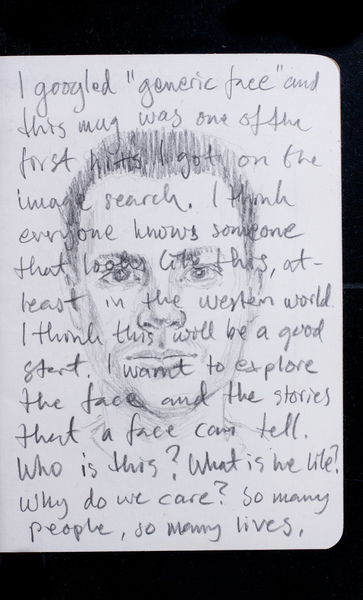 I googled "generic face" and
this mug was one of the
first hits I got on the
image search. I think
everyone knows someone
that looks like this, at-
least in the western world.
I think this will be a good
start. I want to explore
the face and the stories
that a face can tell.
Who is this? What is he like?
Why do we care? So many
people, so many lives.